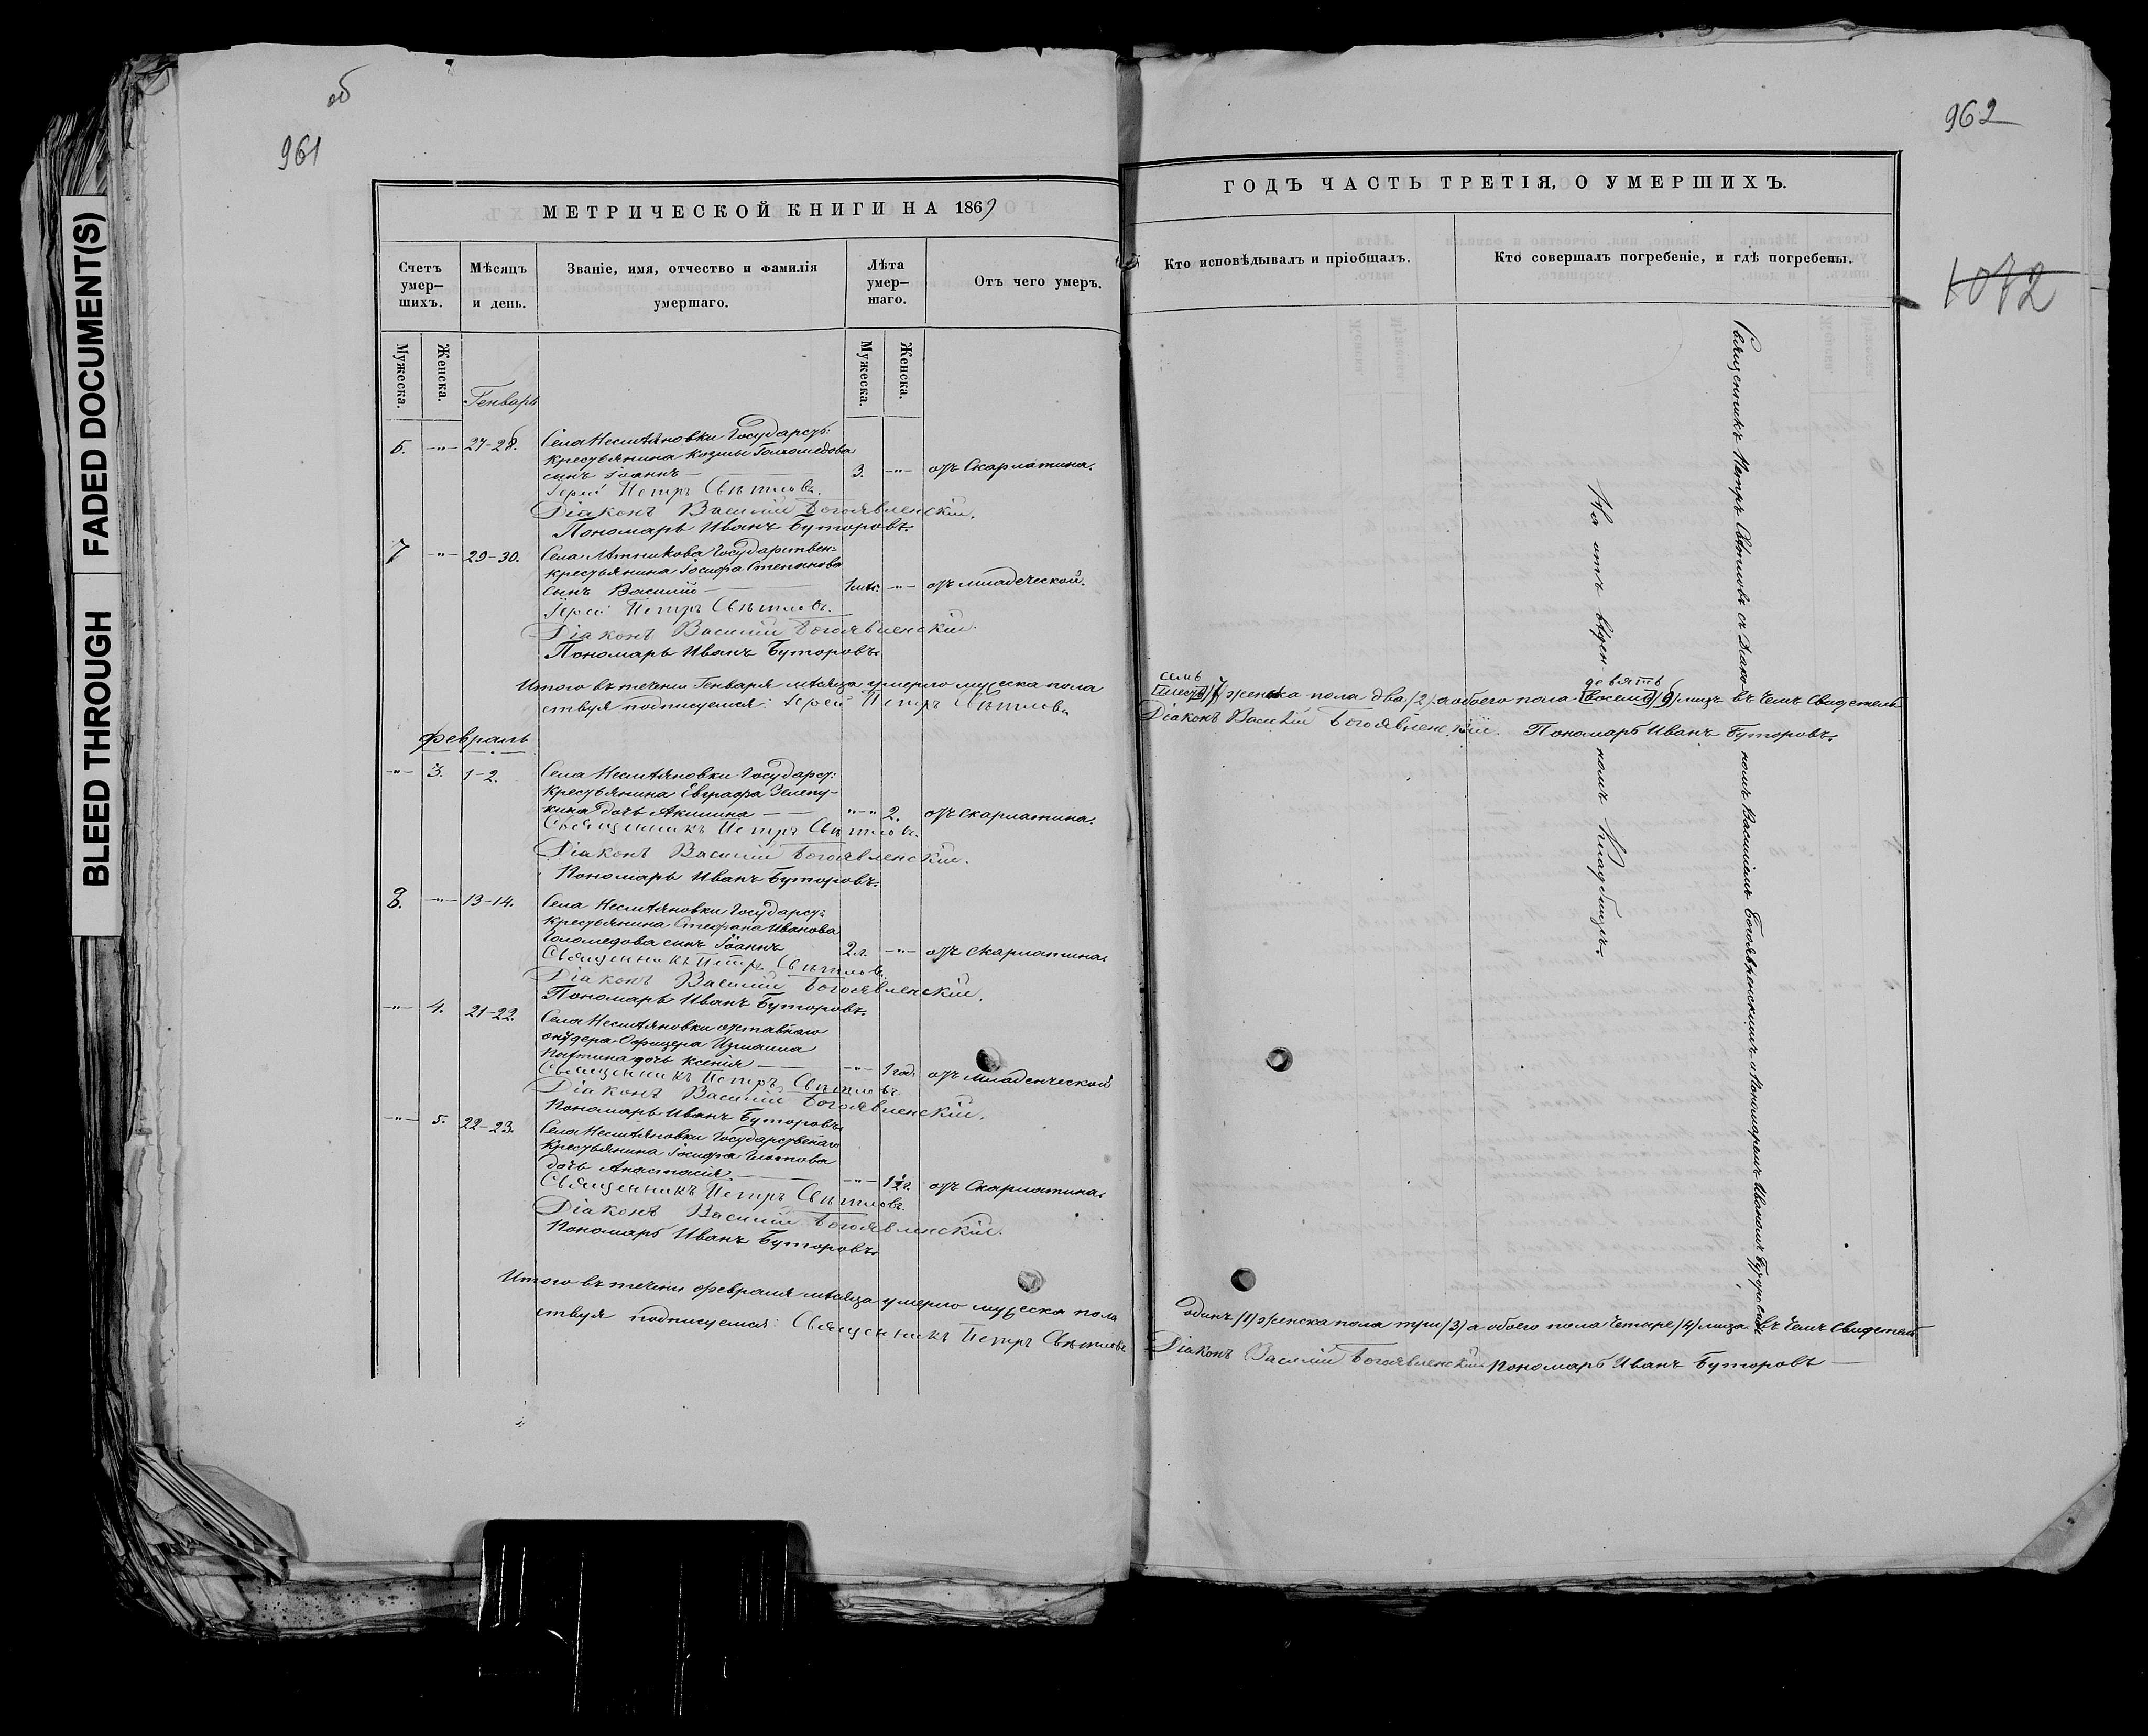 об
961
BLEED THROUGH
FADED DOCUMENT(S)
МЕТРИЧЕСКОЙ КНИГИ НА 1869
Счетъ умер-
шихъ.
Мѣсяцъ
и день.
Званіе, имя, отчество и фамилія
умершаго.
Лѣта
умер-
шаго.
Отъ чего умеръ.
Мужеска.
Женска.
Мужеска.
Женска.
Генварь
6. -"- 27-28. Села Несмѣяновки Государст:
крестьянина Козмы
сынъ Іоаннъ — 3. -"- отъ Скарлатина.
Іерей Петръ Свѣтловъ.
Діаконъ Василій Богоявленскій.
Пономарь Иванъ Буторовъ.
7 -"- 29-30. Села Лѣтникова Государствен:
крестьянина Іосифа Степанова
сынъ Василій — -"- отъ младеческой.
Іерей Петръ Свѣтловъ.
Діаконъ Василій Богоявленскій.
Пономарь Иванъ Буторовъ.
Итого въ теченіи Генваря мѣсяца умерло мужеска пола
ствуя подписуемся: Іерей Петръ Свѣтловъ
Февраль
-"- 3. 1-2. Села Несмѣяновки Государст:
крестьянина Евграфа Зелепу-
кина дочь Акилина — -"- 2. отъ скарлатина.
Священникъ Петръ Свѣтловъ.
Діаконъ Василій Богоявленскій.
Пономарь Иванъ Буторовъ.
8. -"- 13-14. Села Несмѣяновки Государст:
крестьянина Стефана Иванова
сынъ Іоаннъ 2 л. -"- отъ скарлатина.
Священникъ Петръ Свѣтловъ.
Діаконъ Василій Богоявленскій.
Пономарь Иванъ Буторовъ.
-"- 4. 21-22. Села Несмѣяновки отставнаго
ундера-Офицера Измаила
дочь Ксенія — -"- 1 год. отъ Младенческой
Священникъ Петръ Свѣтловъ
Діаконъ Василій Богоявленскій.
Пономарь Иванъ Буторовъ.
-"- 5. 22-23. Села Несмѣяновки Государственаго
крестьянина Іосифа
дочь Анастасія — -"- 1½ г. отъ Скарлатина.
Священникъ Петръ Свѣтловъ.
Діаконъ Василій Богоявленскій.
Пономарь Иванъ Буторовъ.
Итого въ теченіи февраля мѣсяца умерло мужеска пола
ствуя подписуемся: Священникъ Петръ Свѣтловъ
962
1072
ГОДЪ ЧАСТЬ ТРЕТІЯ, О УМЕРШИХЪ.
Кто исповѣдывалъ и пріобщалъ.
Кто совершалъ погребеніе, и гдѣ погребены.
Священникъ Петръ Свѣтловъ съ Діако-
номъ Василіемъ Богоявленскимъ и Пономаремъ Иваномъ Буторовымъ
На отъ веден-
номъ Кладбищѣ.
семь
девять
шесть /7/ женска пола два /2/ а обоего пола восемь /9/ лицъ въ чемъ Свидетель
Діаконъ Василій Богоявленскій. Пономарь Иванъ Буторовъ.
одинъ /1/ женска пола три /3/ а обоего пола четыре /4/ лица въ чемъ Свидетель
Діаконъ Василій Богоявленскій Пономарь Иванъ Буторовъ —